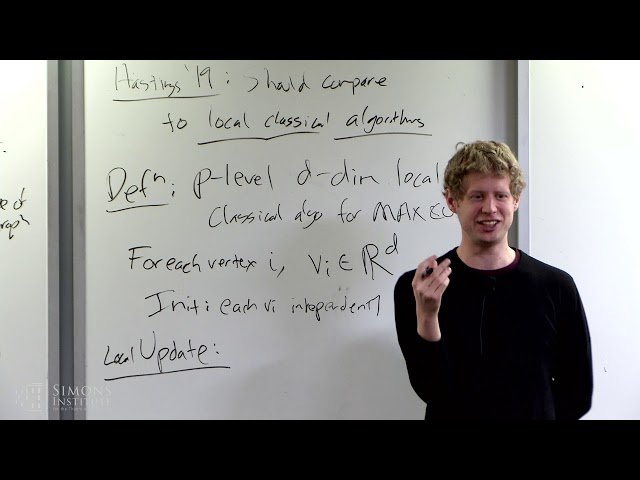 Hastings '19: Should compare
to local classical algorithms
Defⁿ: p-level d-dim local
classical algo for MAX
For each vertex i, Vi ∈ ℝᵈ
Init: each vi independently
Local Update:
e of
raph
SIMONS
INSTITUTE